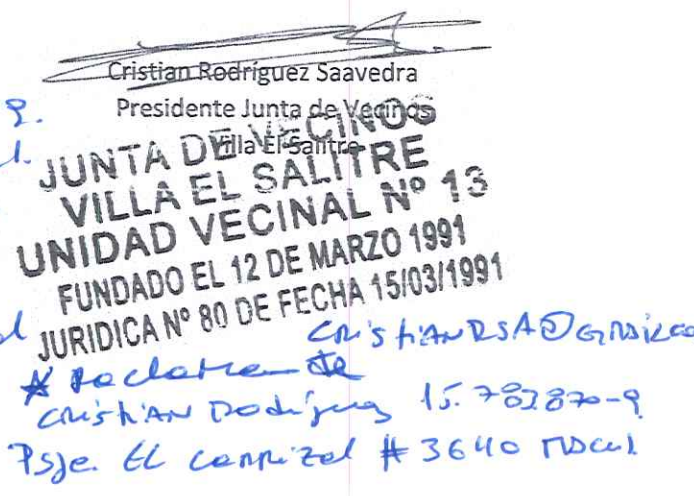 Cristian Rodríguez Saavedra
Presidente Junta de Vecinos
Villa El Salitre
JUNTA DE VECINOS
VILLA EL SALITRE
UNIDAD VECINAL Nº 13
FUNDADO EL 12 DE MARZO 1991
JURIDICA Nº 80 DE FECHA 15/03/1991
CRISTIANRSA@GMAIL.CO
CRISTIAN Rodríguez 15.783870-9
Psje. EL CARRIZAL # 3640